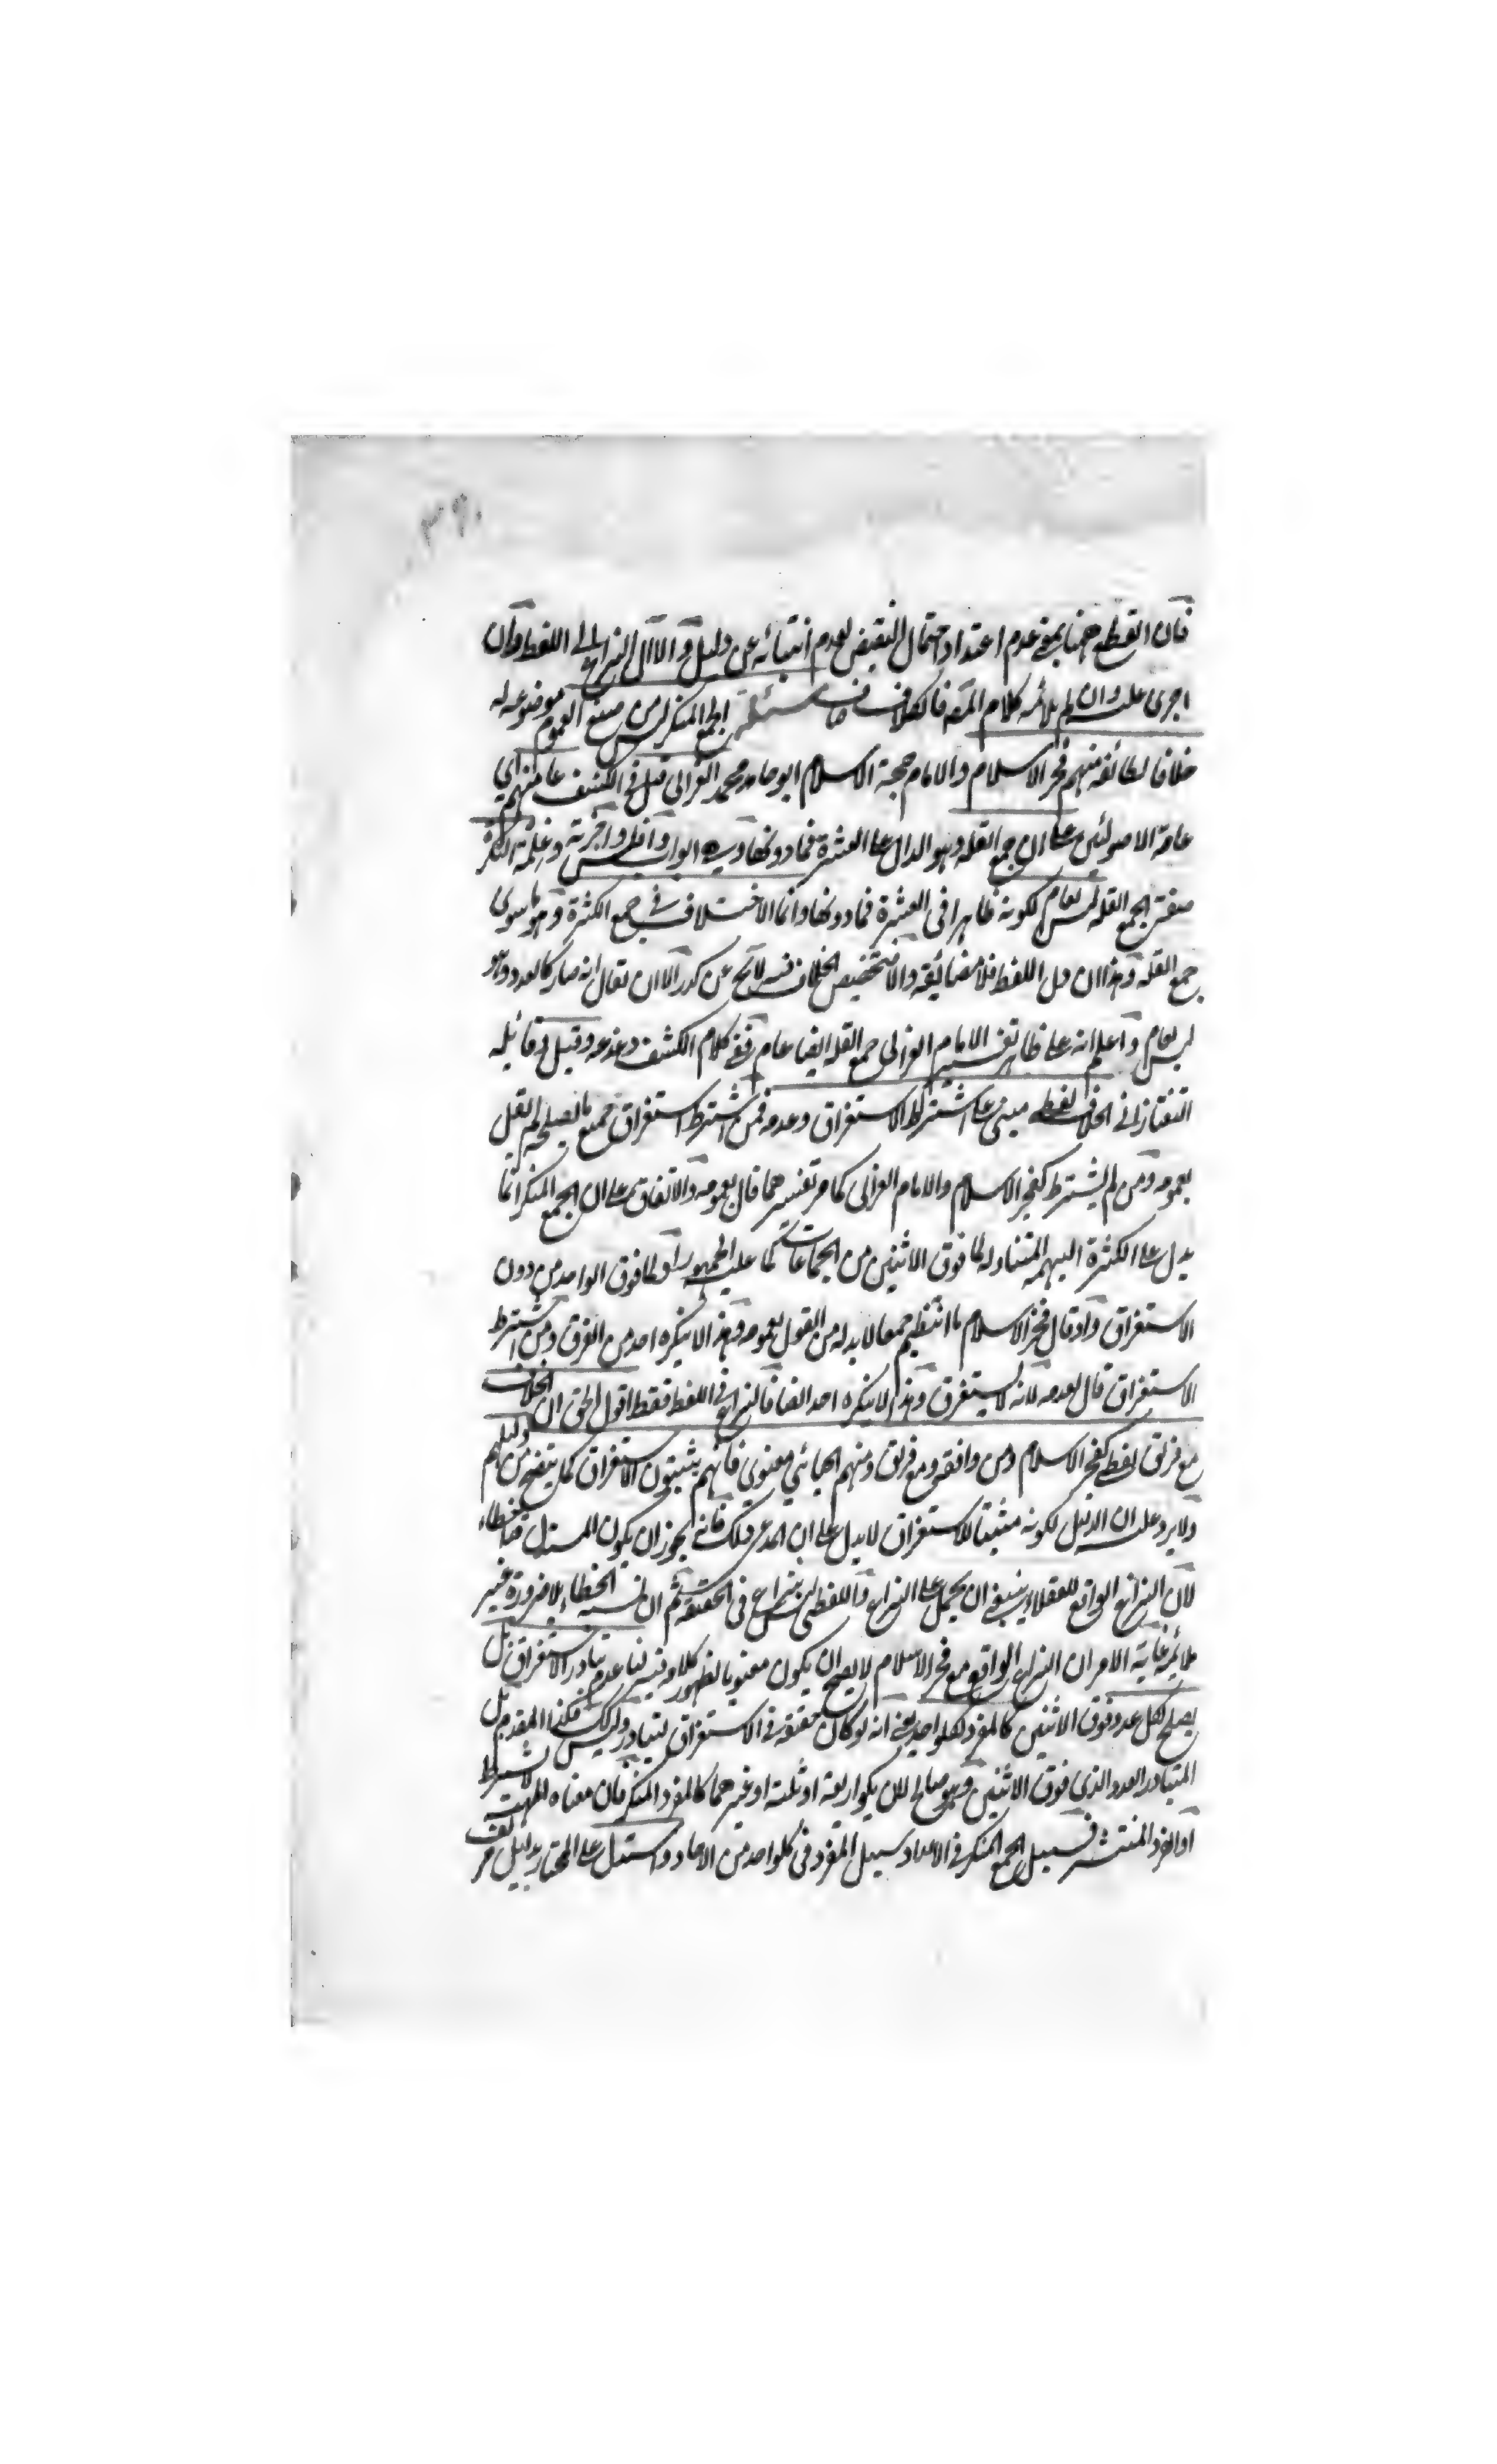 ٣٩٠
فان القطع ههنا بمعنى عدم اعتداد احتمال النقيض لعدم انتشائه عن دليل والا آل النزاع الى اللفظ وان
اجرى عليه وان لم يلائمه كلام المصه فالخلاف مسئلة الجمع المنكر ليس من صيغ العموم موضوعه له
خلافا لطائفة منهم فخر الاسلام والامام حجة الاسلام ابو حامد محمد الغزالى قيل فى الكشف عامتهم اى
عامة الاصوليين على ان جمع القلة وهو الدال على العشرة فما دونها وابنيته افعال وافعل وافعلة وفعلة النكرة
ليس بعام لكونه ظاهرا فى العشرة فما دونها وانما الاختلاف فى جمع الكثرة وهو ما سوى
جمع القلة وهذا ان دل اللفظ فلا مضائقة والا فتخصيص الخلاف فيه لا يخ عن كدر الا ان يقال انه صار كالعدد وهو
ليس بعام واعلم انه على ظاهر تفسير الامام الغزالى جمع القلة ايضا عام ففى كلام الكشف دغدغه وقيل وقائله
التفتازانى الخلاف لفظى مبنى على اشتراط الاستغراق وعدمه فمن اشترط استغراق جميع ما يصلح له لم يقل
بعمومه ومن لم يشترط كفخر الاسلام والامام الغزالى كما مر تفسيرهما قال بعمومه والاتفاق على ان الجمع المنكر انما
يدل على الكثرة المبهمة المتناولة لما فوق الاثنين من الجماعات كما عليه الجمهور او لما فوق الواحد من دون
الاستغراق واذ قال فخر الاسلام ما انتظم جمعا لا بد له من القول بعمومه وهذا لا ينكره احد من الفرق ومن اشترط
الاستغراق قال بعدمه لانه لا يستغرق وهذا لا ينكره احد ايضا فالنزاع فى اللفظ فقط اقول الحق ان الخلاف
مع فريق لفظى كفخر الاسلام ومن وافقه ومع فريق ومنهم الجبائى معنوى فانهم يثبتون الاستغراق كما يتضح من دليلهم
ولا يرد عليه ان الدليل لكونه مثبتا للاستغراق لا يدل على ان المدعى ذلك فانه يجوز ان يكون المستدل خطاء
لان النزاع الواقع للعقلاء ينبغى ان يحمل على النزاع واللفظى ليس بنزاع فى الحقيقة ثم ان نسبة الخطاء بلا ضرورة غير
ملائمة غاية الامر ان النزاع الواقع مع فخر الاسلام لا يصح ان يكون معنويا لظهور كلامه فيه لنا عدم تبادر الاستغراق بل
يصلح لكل عدد فوق الاثنين كالمفرد لكل واحد يعنى انه لو كان حقيقة فى الاستغراق لتبادر وليس كك فكذا المقدم بل
المتبادر العدد الذى فوق الاثنين وهو صالح لان يكون اربعة او ثلثة او غيرهما كالمفرد المنكر فان معناه المهية لا بشرط
او الفرد المنتشر فسبيل الجمع المنكر فى الاعداد سبيل المفرد فى كل واحد من الاحاد واستدل على المختار بدليل مزيف